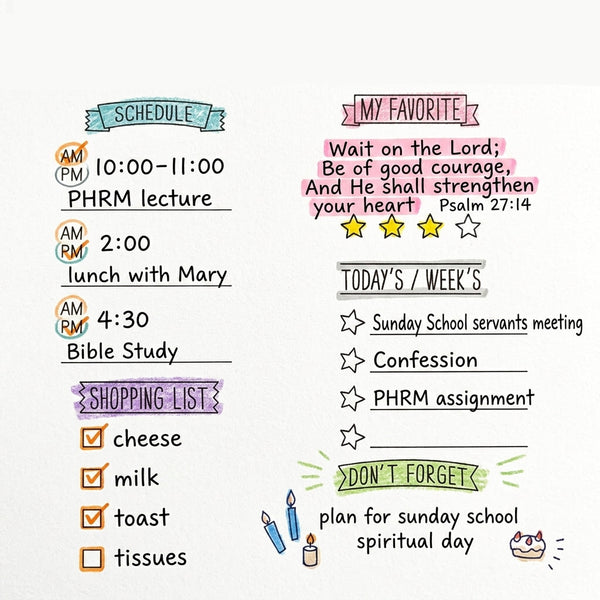 SCHEDULE
AM
PM
10:00-11:00
PHRM lecture
AM
PM
2:00
lunch with Mary
AM
PM
4:30
Bible Study
SHOPPING LIST
cheese
milk
toast
tissues
MY FAVORITE
Wait on the Lord;
Be of good courage,
And He shall strengthen
your heart Psalm 27:14
TODAY'S / WEEK'S
Sunday School servants meeting
Confession
PHRM assignment
DON'T FORGET
plan for sunday school
spiritual day